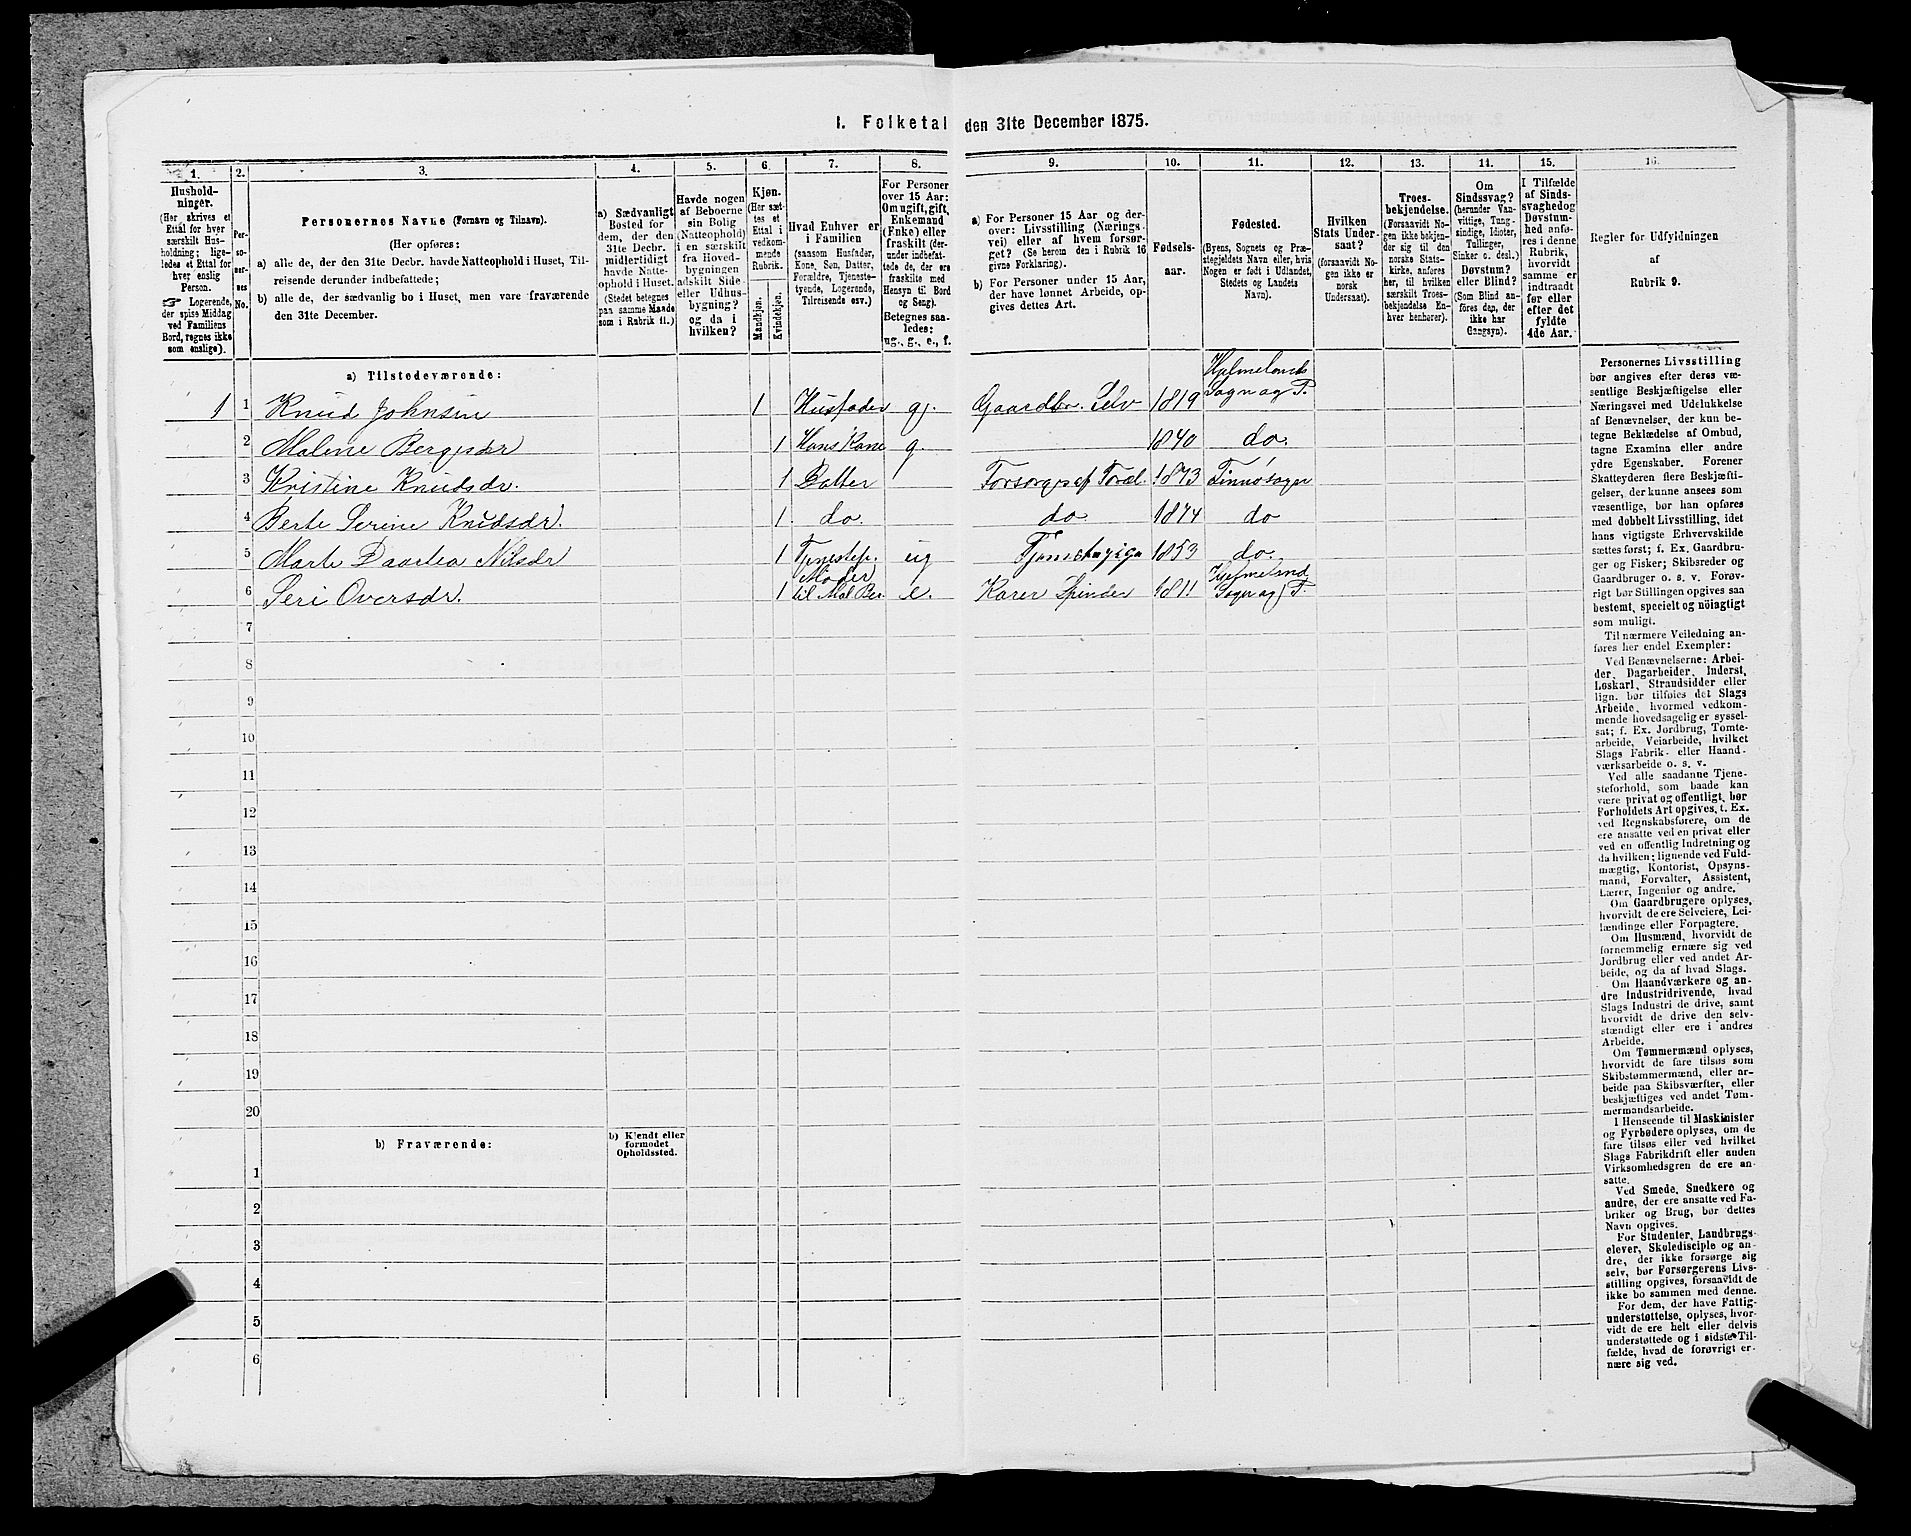 I. Folketal den 31te December 1875.
1. 2. 3. 4. 5. 6. 7. 8. 9. 10. 11. 12. 13. 14. 15. 16.
Hushold-
ninger.
(Her skrives et
Ettal for hver
særskilt Hus-
holdning; lige-
ledes et Ettal for
hver enslig
Person.
☞ Logerende,
der spise Middag
ved Familiens
Bord, regnes ikke
som enslige).
Per-
so-
ner-
nes
No.
Personernes Navne (Fornavn og Tilnavn).
(Her opføres:
a) alle de, der den 31te Decbr. havde Natteophold i Huset, Til-
reisende derunder indbefattede;
b) alle de, der sædvanlig bo i Huset, men vare fraværende
den 31te December.
a) Sædvanligt
Bosted for
dem, der den
31te Decbr.
midlertidigt
havde Natte-
ophold i Huset.
(Stedet betegnes
paa samme Maade
som i Rubrik 11.)
Havde nogen
af Beboerne
sin Bolig
(Natteophold)
i en særskilt
fra Hoved-
bygningen
adskilt Side-
eller Udhus-
bygning?
og da i
hvilken?
Kjøn.
(Her sæt-
tes et
Ettal i
vedkom-
mende
Rubrik.
Mandkjøn.
Kvindekjøn.
Hvad Enhver er
i Familien
(saasom Husfader,
Kone, Søn, Datter,
Forældre, Tjeneste-
tyende, Logerende,
Tilreisende osv.)
For Personer
over 15 Aar:
Om ugift, gift,
Enkemand
(Enke) eller
fraskilt (der-
under indbefat-
tede de, der ere
fraskilte med
Hensyn til Bord
og Seng).
Betegnes saa-
ledes:
ug., g., e., f.
a) For Personer 15 Aar og der-
over: Livsstilling (Nærings-
vei) eller af hvem forsør-
get? (Se herom den i Rubrik 16
givne Forklaring).
b) For Personer under 15 Aar,
der have lønnet Arbeide, op-
gives dettes Art.
Fødsels-
aar.
Fødested.
(Byens, Sognets og Præ-
stegjeldets Navn eller, hvis
Nogen er født i Udlandet,
Stedets og Landets
Navn).
Hvilken
Stats Under-
saat?
(forsaavidt No-
gen ikke er
norsk
Undersaat).
Troes-
bekjendelse.
(Forsaavidt No-
gen ikke bekjen-
der sig til den
norske Stats-
kirke, anføres
her, til hvilken
særskilt Troes-
bekjendelse En-
hver henhører).
Om
Sindssvag?
(herunder Van-
vittige, Tung-
sindige, Idioter,
Tullinger,
Sinker o. desl.)
Døvstum?
eller Blind?
(Som Blind an-
føres den, der
ikke har
Gangsyn).
I Tilfælde
af Sinds-
svaghed og
Døvstum-
hed anfø-
res i denne
Rubrik,
hvorvidt
samme er
indtraadt
før eller
efter det
fyldte
4de Aar.
Regler for Udfyldningen
af
Rubrik 9.
a) Tilstedeværende:
1 1 Knud Johnsen 1 Husfader g. Gaardbr. Selv 1819 Hjelmelands Sogn og P.
2 Malene Bergesdr 1 Hans Kone g. 1840 do.
3 Kristine Knudsdr. 1 Datter Forsørges af Foræl. 1873 Finnø sogn
4 Berte Serine Knudsdr. 1. do. do. 1874 do
5 Marte Daartea Nilsdr 1 Tjenestep. ug 1853 do.
6 Seri Oversdr. 1 Moder til Mal Ber. e. Karer Spinder 1811 Hjelmeland Sogn og P.
7
8
9
10
11
12
13
14
15
16
17
18
19
20
b) Fraværende:
b) Kjendt eller
formodet
Opholdssted.
1
2
3
4
5
6
Personernes Livsstilling
bør angives efter deres væ-
sentlige Beskjæftigelse eller
Næringsvei med Udelukkelse
af Benævnelser, der kun be-
tegne Beklædelse af Ombud,
tagne Examina eller andre
ydre Egenskaber. Forener
Skatteyderen flere Beskjæfti-
gelser, der kunne ansees som
væsentlige, bør han opføres
med dobbelt Livsstilling, idet
hans vigtigste Erhvervskilde
sættes først; f. Ex. Gaardbru-
ger og Fisker; Skibsreder og
Gaardbruger o. s. v. Forøv-
rigt bør Stillingen opgives saa
bestemt, specielt og nöiagtigt
som muligt.
Til nærmere Veiledning an-
føres her endel Exempler:
Ved Benævnelserne: Arbei-
der, Dagarbeider, Inderst,
Løskarl, Strandsidder eller
lign. bør tilføies det Slags
Arbeide, hvormed vedkom-
mende hovedsagelig er syssel-
sat; f. Ex. Jordbrug, Tomte-
arbeide, Veiarbeide, hvilket
Slags Fabrik- eller Haand-
værksarbeide o. s. v.
Ved alle saadanne Tjene-
steforhold, som baade kan
være privat og offentligt, bør
Forholdets Art opgives, t. Ex.
ved Regnskabsførere, om de
ere ansatte ved en privat eller
ved en offentlig Indretning og
da hvilken; lignende ved Fuld-
mægtig, Kontorist, Opsyns-
mand, Forvalter, Assistent,
Lærer, Ingeniør og andre.
Om Gaardbrugere oplyses,
hvorvidt de ere Selveiere, Lei-
lændinge eller Forpagtere.
Om Husmænd, hvorvidt de
fornemmelig ernære sig ved
Jordbrug eller ved andet Ar-
beide, og da af hvad Slags.
Om Haandværkere og an-
dre Industridrivende, hvad
Slags Industri de drive, samt
hvorvidt de drive den selv-
stændigt eller ere i andres
Arbeide.
Om Tømmermænd oplyses,
hvorvidt de fare tilsøs som
Skibstømmermænd, eller ar-
beide paa Skibsværfter, eller
beskjæftiges ved andet Tøm-
mermandsarbeide.
I Henseende til Maskinister
og Fyrbødere oplyses, om de
fare tilsøs eller ved hvilket
Slags Fabrikdrift eller anden
Virksomhedsgren de ere an-
satte.
Ved Smede, Snedkere og
andre, der ere ansatte ved Fa-
briker og Brug, bør dettes
Navn opgives.
For Studenter, Landbrugs-
elever, Skoledisciple og an-
dre, der ikke forsørge sig
selv, bør Forsørgerens Livs-
stilling opgives, forsaavidt de
ikke bo sammen med denne.
For dem, der have Fattig-
understøttelse, oplyses, hvor-
vidt de ere helt eller delvis
understøttede og i sidste Til-
fælde, hvad de forøvrigt er-
nære sig ved.